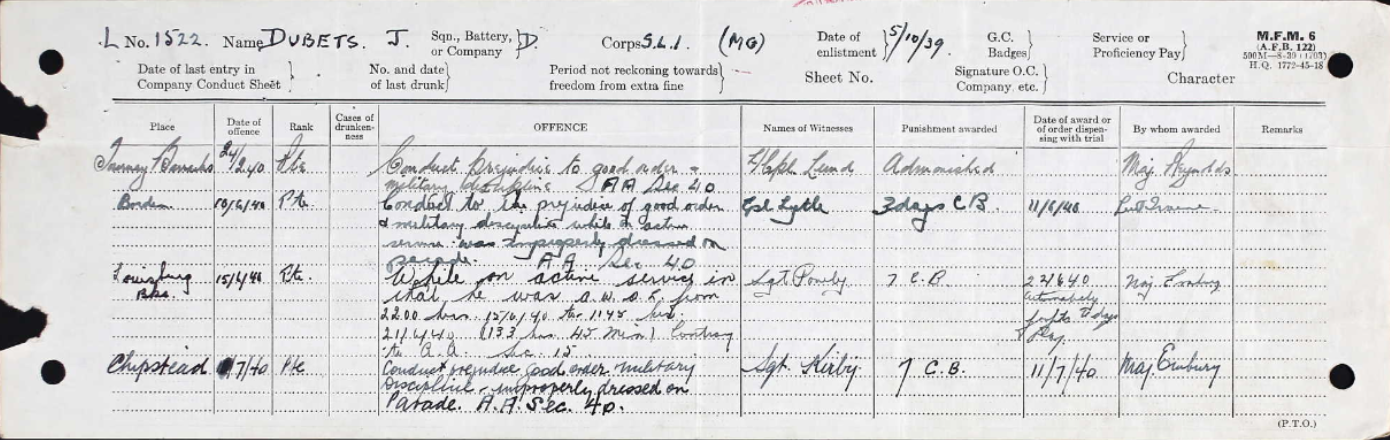 L No. 1522. Name DUBETS. J. Sqn., Battery, or Company } D. Corps S.L.I. (MG) Date of enlistment } 5/10/39. G.C. Badges } Service or Proficiency Pay } M.F.M. 6
(A.F.B. 122)
500M—8-39 (1703)
H.Q. 1772-45-18
Date of last entry in Company Conduct Sheet } No. and date of last drunk } Period not reckoning towards freedom from extra fine } Sheet No. Signature O.C. Company, etc. } Character
Place Date of offence Rank Cases of drunkenness OFFENCE Names of Witnesses Punishment awarded Date of award or of order dispensing with trial By whom awarded Remarks
24/2.40 Pte Conduct prejudice to good order - Lund Admonished Maj. Reynolds.
military discipline AA Sec 40
Borden 10/6/40 Pte. Conduct to the prejudice of good order Cpl Lytle 3 days C B. 11/6/40
& military discipline while on active
service. was improperly dressed on
parade. AA Sec. 40
Louisburg Bks. 15/6/40 Pte. While on active service in Sgt. 7 C.B. 22 6 40 Maj.
that he was a.w.o.l. from
2200 hrs. 15/6/40 to 1145 hrs.
21/6/40 (133 hrs 45 Min) Contrary
to A.A. Sec. 15
Chipstead 7/40 Pte Conduct prejudice good order military Sgt. Kirby. 7 C.B. 11/7/40 Maj Embury
Discipline - improperly dressed on
Parade. A.A. Sec. 40.
(P.T.O.)